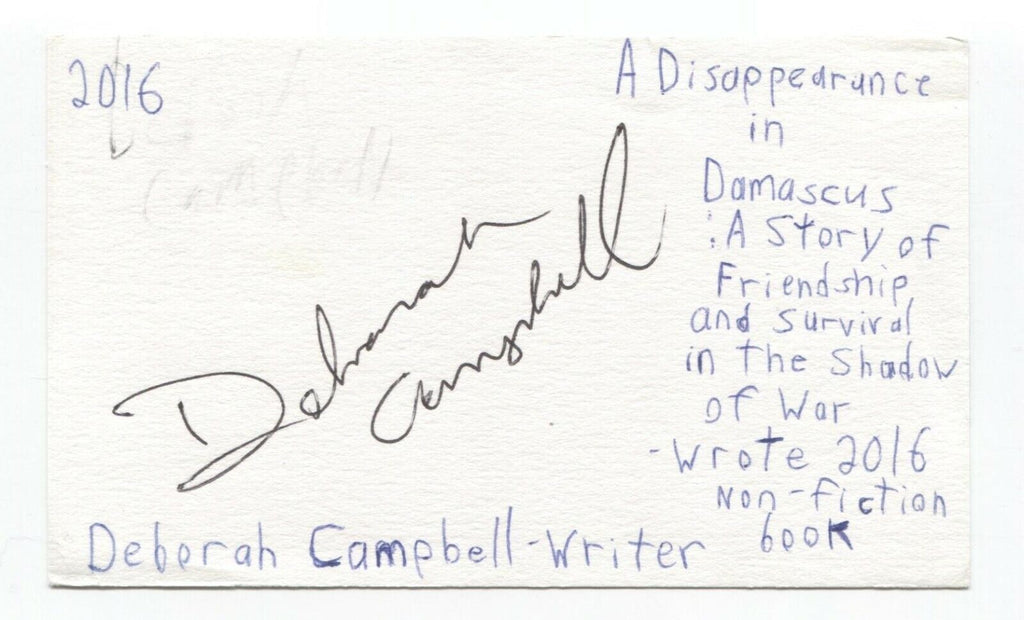 2016
Campbell
Deborah
Campbell
A Disappearance
in
Damascus
: A Story of
Friendship
and Survival
in the Shadow
of War
-Wrote 2016
Non-fiction
book
Deborah Campbell-Writer